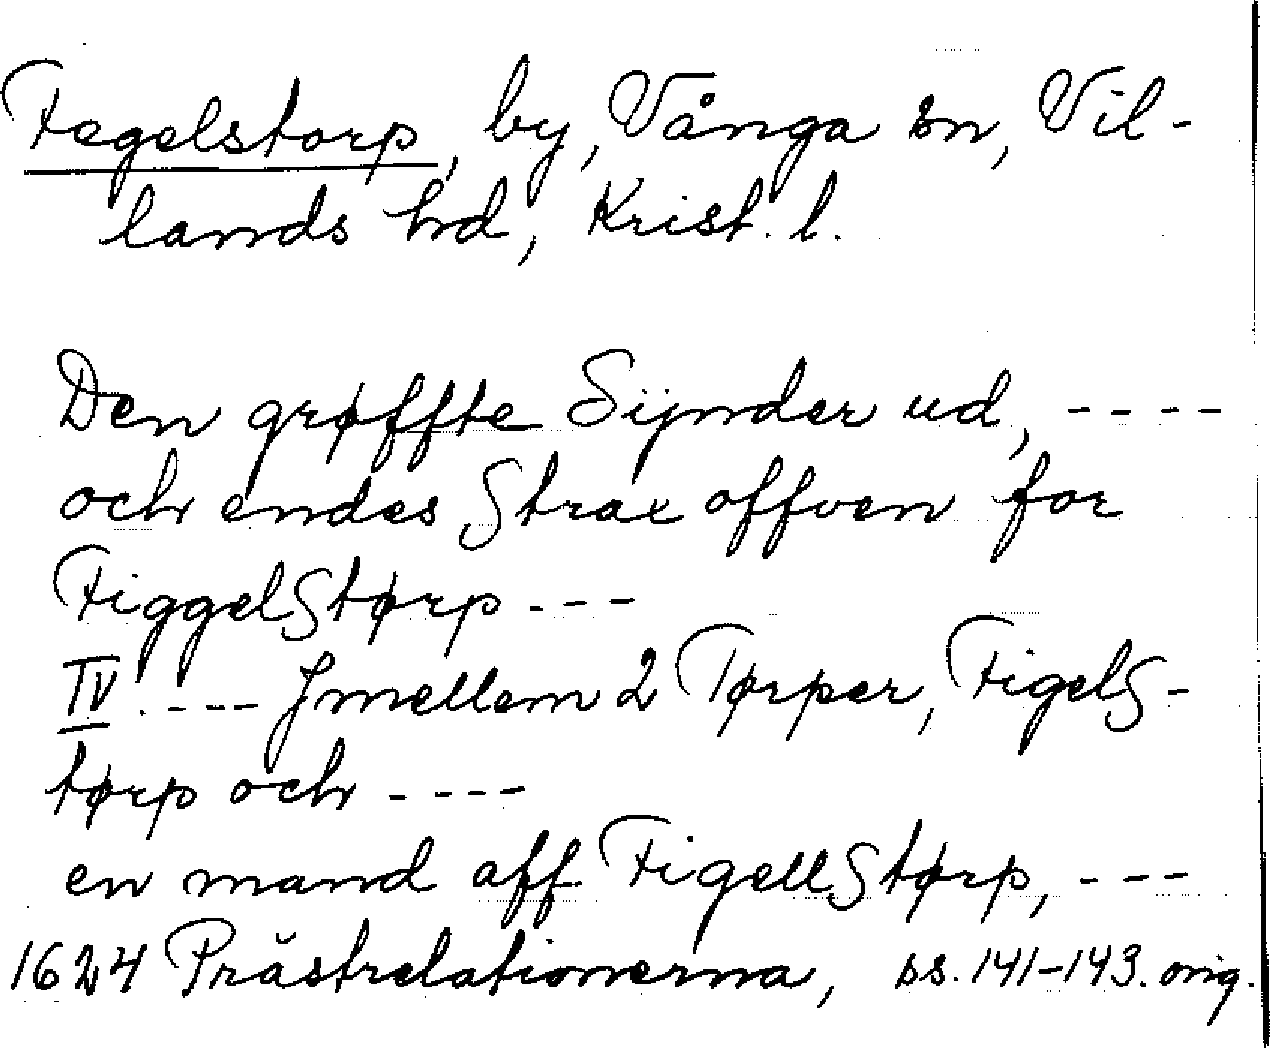 Fegelstorp, by, Vånga sn, Vil-
lands hd, Krist. l.
Den grøffte Sÿnder ud, ----
och endes Strax offven for
FiggelStørp ---
IV ---- Jmellem 2 Tørper, FigelS-
tørp och ----
en mand aff FigellStørp, ---
1624 Prästrelationerna, ss. 141-143. orig.